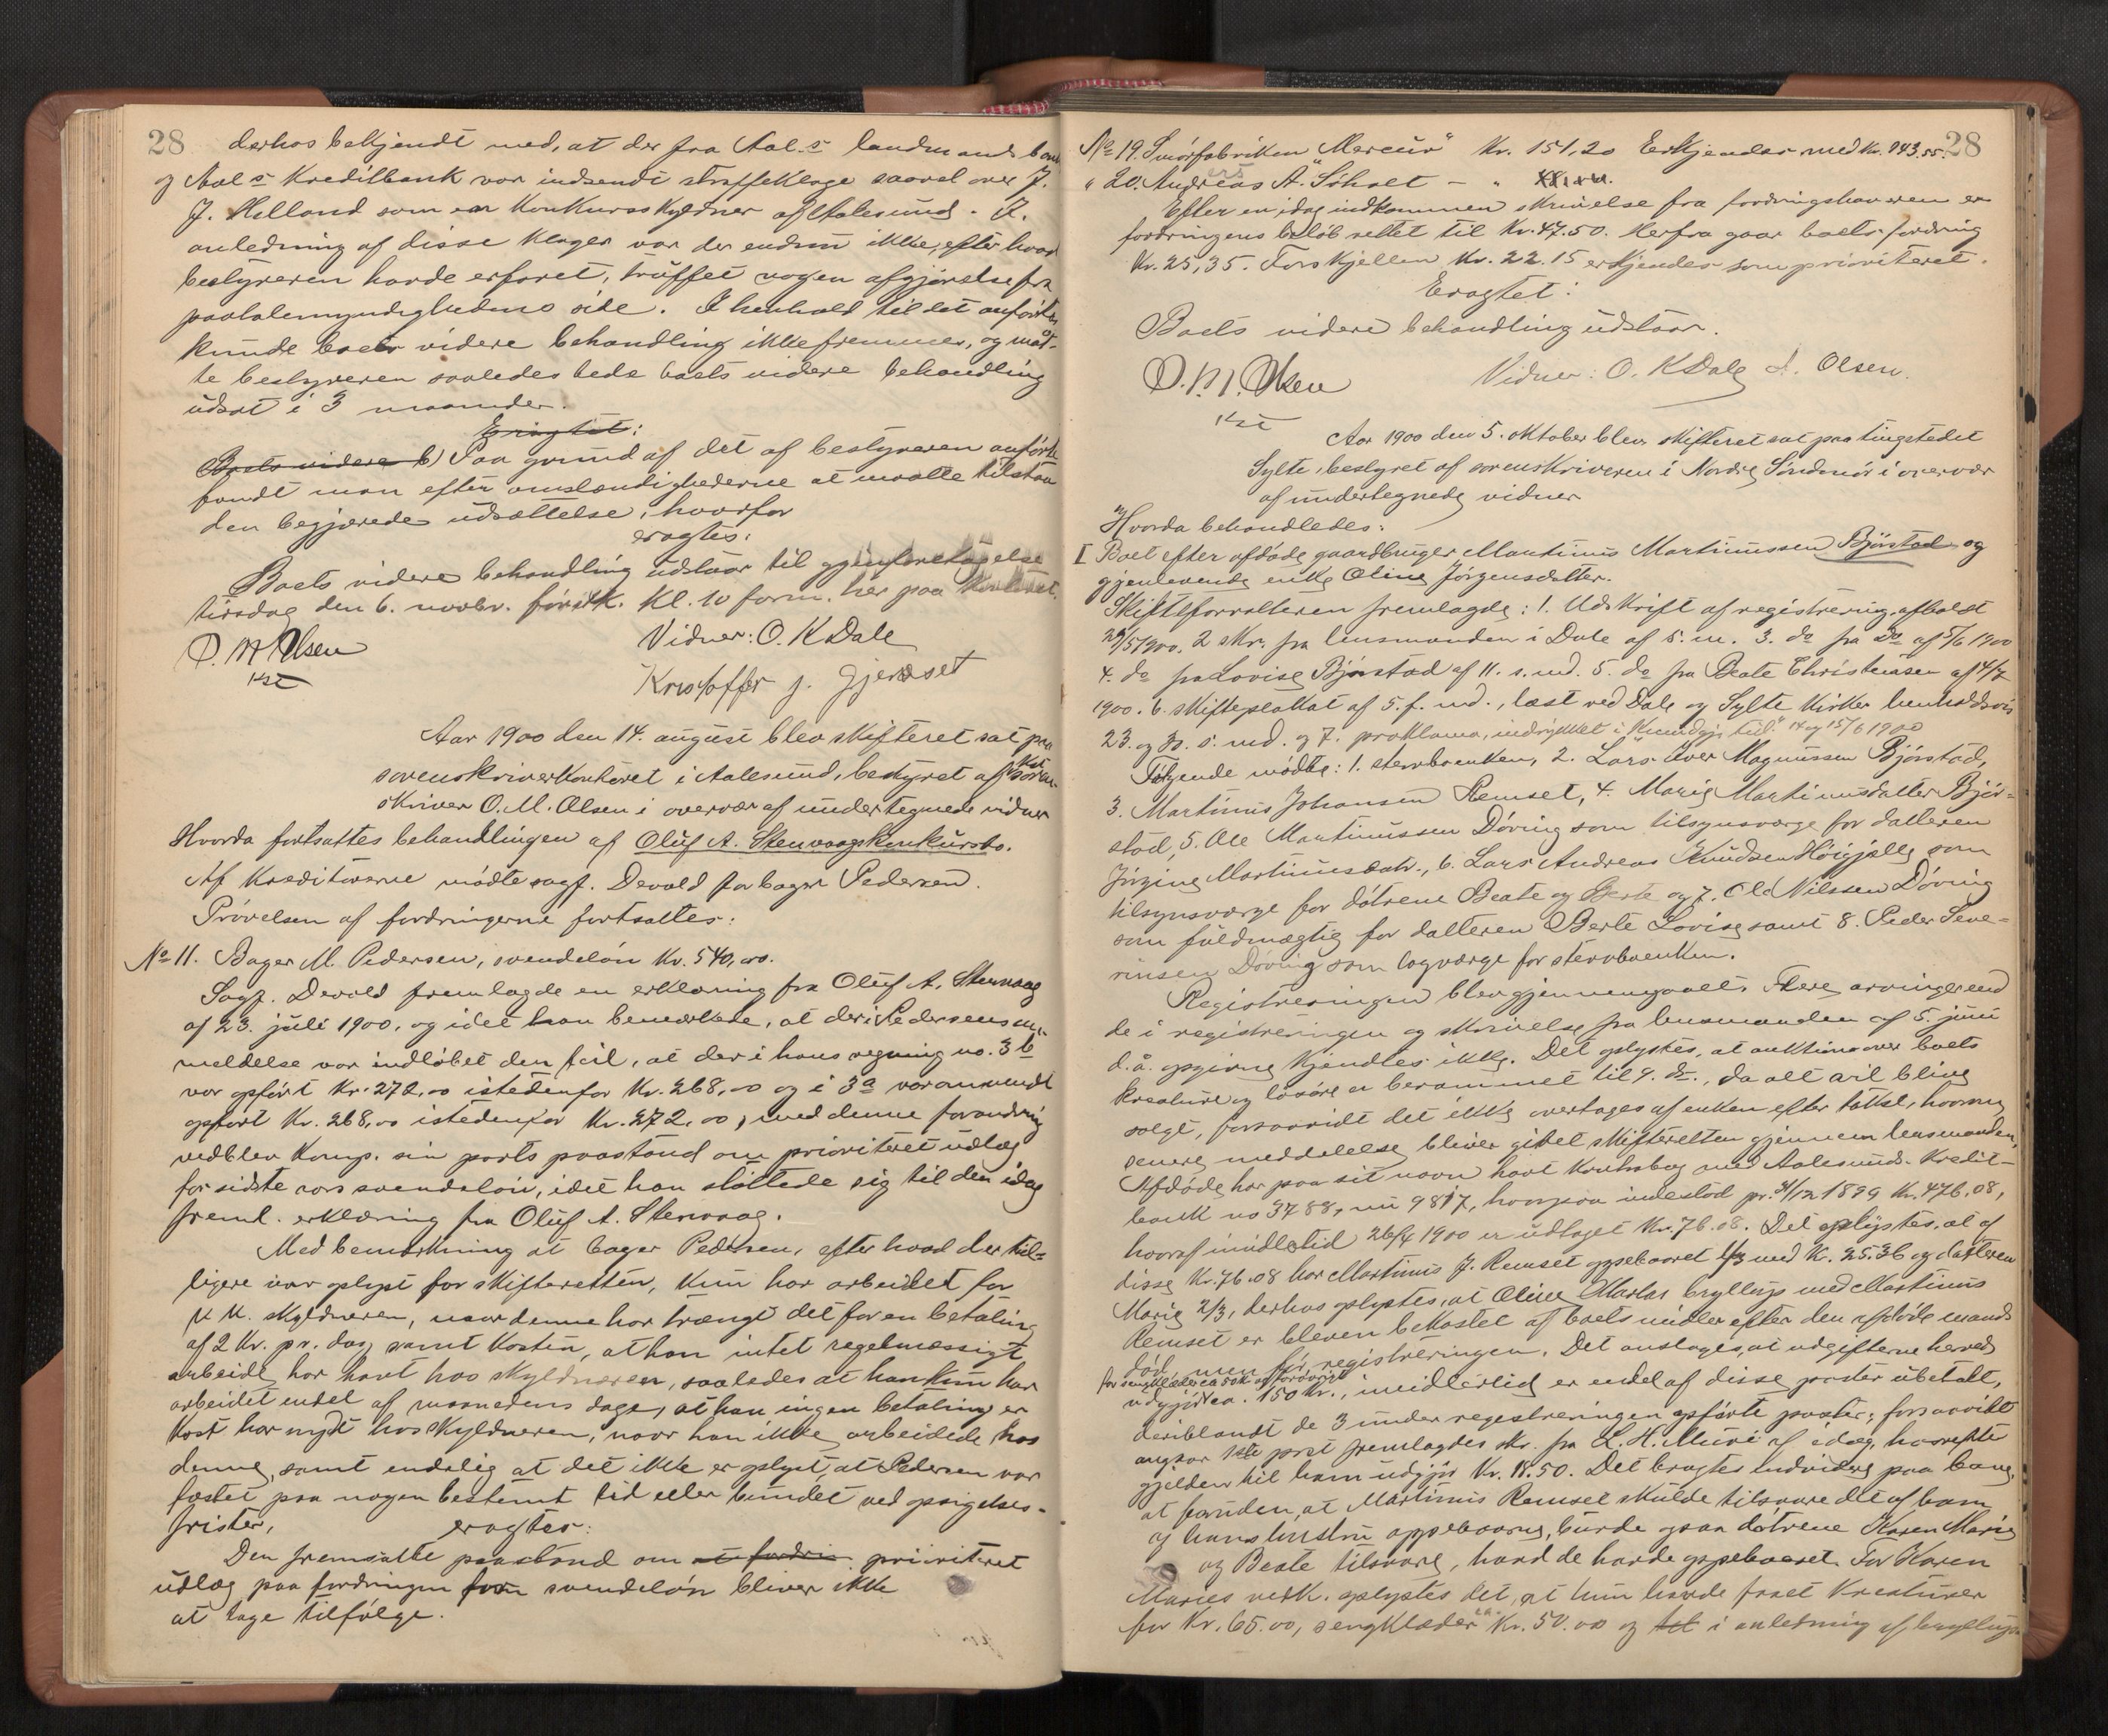 28 derhos bekjendt med, at der fra Aal.s landmandsbank
og Aal.s Kreditbank var indsendt straffeklage saavel over J.
J. Helland som over Konkursskyldner af Aalesund. I
anledning af disse klager var der endnu ikke, efter hvad
bestyreren havde erfaret, truffet nogen afgjørelse fra
paatalemyndighedens side. I henhold til det anførte
kunde boets videre behandling ikke fremmes, og maat-
te bestyreren saaledes bede boets videre behandling
udsat i 3 maaneder.
Eragtet:
Boets videre b) Paa grund af det af bestyreren anførte
fandt man efter omstændighederne at maatte tilstaa
den begjærede udsættelse, hvorfor
eragtes:
Boets videre behandling udstaar til gjenforetagelse
tirsdag den 6. novbr. førstk. kl. 10 form. her paa kontoret.
O. M. Olsen
Vidner: O. K Dale
Kristoffer J. Gjerdset
Aar 1900 den 14. august blev skifteret sat paa
sorenskriverkontoret i Aalesund, bestyret af kst. soren-
skriver O. M. Olsen i overvær af undertegnede vidner
Hvorda fortsattes behandlingen af Oluf A. Stenvaags konkursbo.
Af kreditorerne mødte sagf. Devold for bager Pedersen.
Prøvelsen af fordringerne fortsattes:
No 11. Bager M. Pedersen, svendeløn Kr. 540,00.
Sagf. Devold fremlagde en erklæring fra Oluf A. Stenvaag
af 23. juli 1900, og idet han bemærkede, at der i Pedersens an-
meldelse var indløbet den feil, at der i hans regning no. 3 b
var opført Kr. 272,00 istedenfor Kr. 268,00 og i 3a var omvendt
opført Kr. 268,00 istedenfor Kr. 272,00, med denne forandring
vedblev komp. sin parts paastand om prioriteret udlæg
for sidste aars svendeløn, idet han støttede sig til den idag
freml. erklæring fra Oluf A. Stenvaag.
Med bemærkning at bager Pedersen, efter hvad der tid-
ligere var oplyst for skifteretten, kun har arbeidet for
skyldneren, naar denne har trængt det for en betaling
af 2 Kr. pr. dag samt kosten, at han intet regelmæssigt
arbeide har havt hos skyldneren, saaledes at han kun har
arbeidet endel af maanedens dage, at han ingen betaling er
kost har nydt hos skyldneren, naar han ikke arbeidede hos
denne, samt endelig at det ikke er oplyst, at Pedersen var
fæstet paa nogen bestemt tid eller bundet ved opsigelses-
frister, eragtes:
Den fremsatte paastand om at fordrin prioriteret
udlæg paa fordringen for svendeløn bliver ikke
at tage tilfølge.
No 19. Smørfabriken "Mercur" Kr. 151,20 Erkjendes med Kr. 143.55. 28
" 20. Andreas A. Søholt - "
Efter en idag indkommen skrivelse fra fordringshaveren er
fordringens beløb rettet til Kr. 47.50. Herfra gaar boets fordring
Kr. 25,35. Forskjellen Kr. 22.15 erkjendes som prioriteret.
Eragtet:
Boets videre behandling udstaar.
O. M. Olsen
Vidner: O. K Dale A. Olsen.
Aar 1900 den 5. oktober blev skifteret sat paa tingstedet
Sylte, bestyret af sorenskriveren i Nordre Søndmør i overvær
af undertegnede vidner
Hvorda behandledes:
I Boet efter afdøde gaardbruger Martinus Martinussen Bjørstad og
gjenlevende enke Oline Jørgensdatter.
Skifteforvalteren fremlagde: 1. Udskrift af registrering, afholdt
29/5 1900. 2 skr. fra lensmanden i Dale af 5. m. 3. do fra Do af 5/6 1900
4. do fra Lovise Bjørstad af 11. s. md. 5. do fra Beate Christensen af 14/7
1900. 6. skifteplakat af 5. f. md., læst ved Dale og Sylte kirker henholdsvis
23. og 30. s. md. og 7. proklama, indrykket i "Kundgj. tid." 14 og 15/6 1900
Følgende mødte: 1. stervboenken, 2. Lars Iver Magnussen Bjørstad,
3. Martinus Johansen Remset, 4. Marie Martinusdatter Bjør-
stad, 5. Ole Martinussen Døving som tilsynsværge for datteren
Jørgine Martinusdatr., 6. Lars Andreas Knudsen Høigjelle som
tilsynsværge for døtrene Beate og Berte og 7. Ole Nilssen Døving
som fuldmægtig for datteren Berte Lovise samt 8. Peder Seve-
rinsen Døving som lagværge for stervboenken.
Registreringen blev gjennemgaaet. Flere arvinger end
de i registreringen og skrivelse fra lensmanden af 5. juni
d.å. opgivne kjendtes ikke. Det oplystes, at auktion over boets
kreature og løsøre er berammet til 9. ds., da alt vil blive
solgt, forsaavidt det ikke overtages af enken efter takst, hvorom
senere meddelelse bliver givet skifteretten gjennem lensmanden,
Afdøde har paa sit navn havt kontrabog med Aalesunds Kredit-
bank no 3788, nu 9817, hvorpaa indestod pr. 31/12 1899 Kr. 476,08,
hvoraf imidlertid 26/4 1900 er udtaget Kr. 76.08. Det oplystes, at af
disse Kr. 76.08 har Martinus J. Remset oppebaaret 1/3 med Kr. 25.36 og datteren
Marie 2/3, derhos oplystes, at Oline Martas bryllup med Martinus
Remset er bleven bekostet af boets midler efter den afdøde mands
død, men før registreringen. Det antoges, at udgifterne herved
for sengklæder ca 50 Kr og forøvrigt
udgjør ca. 150 Kr., imidlertid er endel af disse poster ubetalt,
deriblandt de 3 under registreringen opførte poster; forsaavidt
angaar 1ste post fremlagdes skr. fra L. H. Muri af idag, hvorefter
gjelden til ham udgjør Kr. 18.50. Det bragtes endvidere paa bane,
at foruden, at Martinus Remset skulde tilsvare det af ham
og hans hustru oppebaarne, burde ogsaa døtrene Karen Marie
og Beate tilsvare, hvad de havde oppebaaret. For Karen
Maries vedk. oplystes det, at hun havde faaet kreaturer
for Kr. 65.00, sengklæder ca. Kr. 50.00 og tet i anledning af bryllup